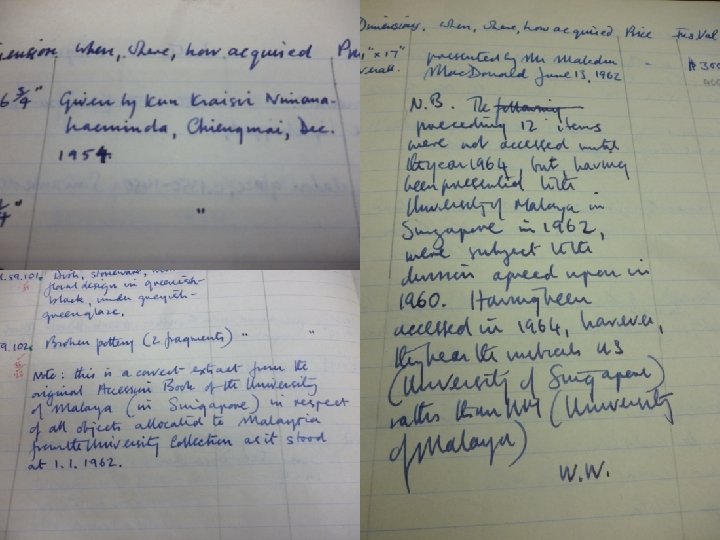 dimension when, where, how acquired Pri
6 3/4" Given by Kun Kraisri Nimana-
haeminda, Chiengmai, Dec.
1954.
1/4" "
59.101 Dish, stoneware,
floral design in greenish-
black, under greyish-
green glaze.
9.102 Broken pottery (2 fragments) " "
Note: this is a correct extract from the
original Accession Book of the University
of Malaya (in Singapore) in respect
of all objects allocated to Malaysia
from the University Collection as it stood
at 1.1.1962.
Dimensions, when, where, how acquired Price Ins Val
" x 17" presented by Mr Malcolm " $300
overall. MacDonald June 13, 1962
N.B. The following
preceding 12 items
were not accessed until
the year 1964, but having
been presented to the
University of Malaya in
Singapore in 1962,
were subject to the
division agreed upon in
1960. Having been
accessed in 1964, however,
they bear the initials US
(University of Singapore)
rather than UM (University
of Malaya)
W.W.